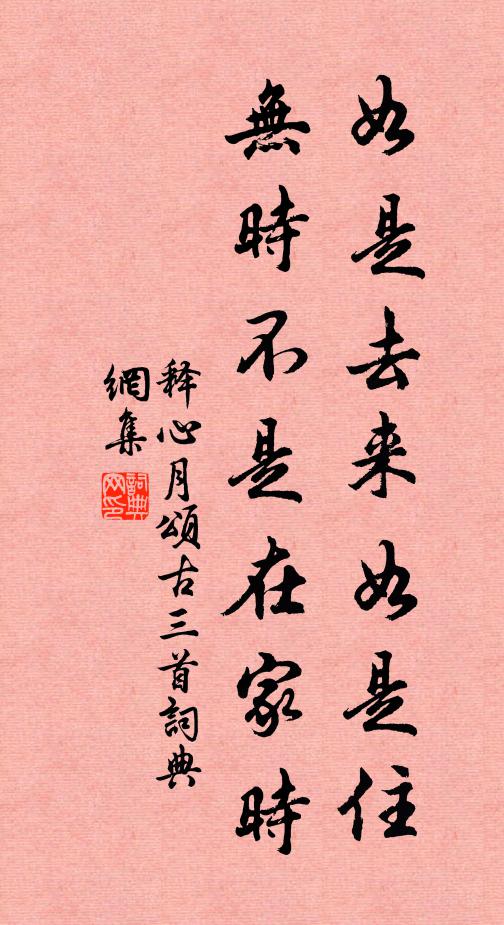 如是去来如是住
無時不是在家時
释心月頌古三首詞典
網集
詞典
网印